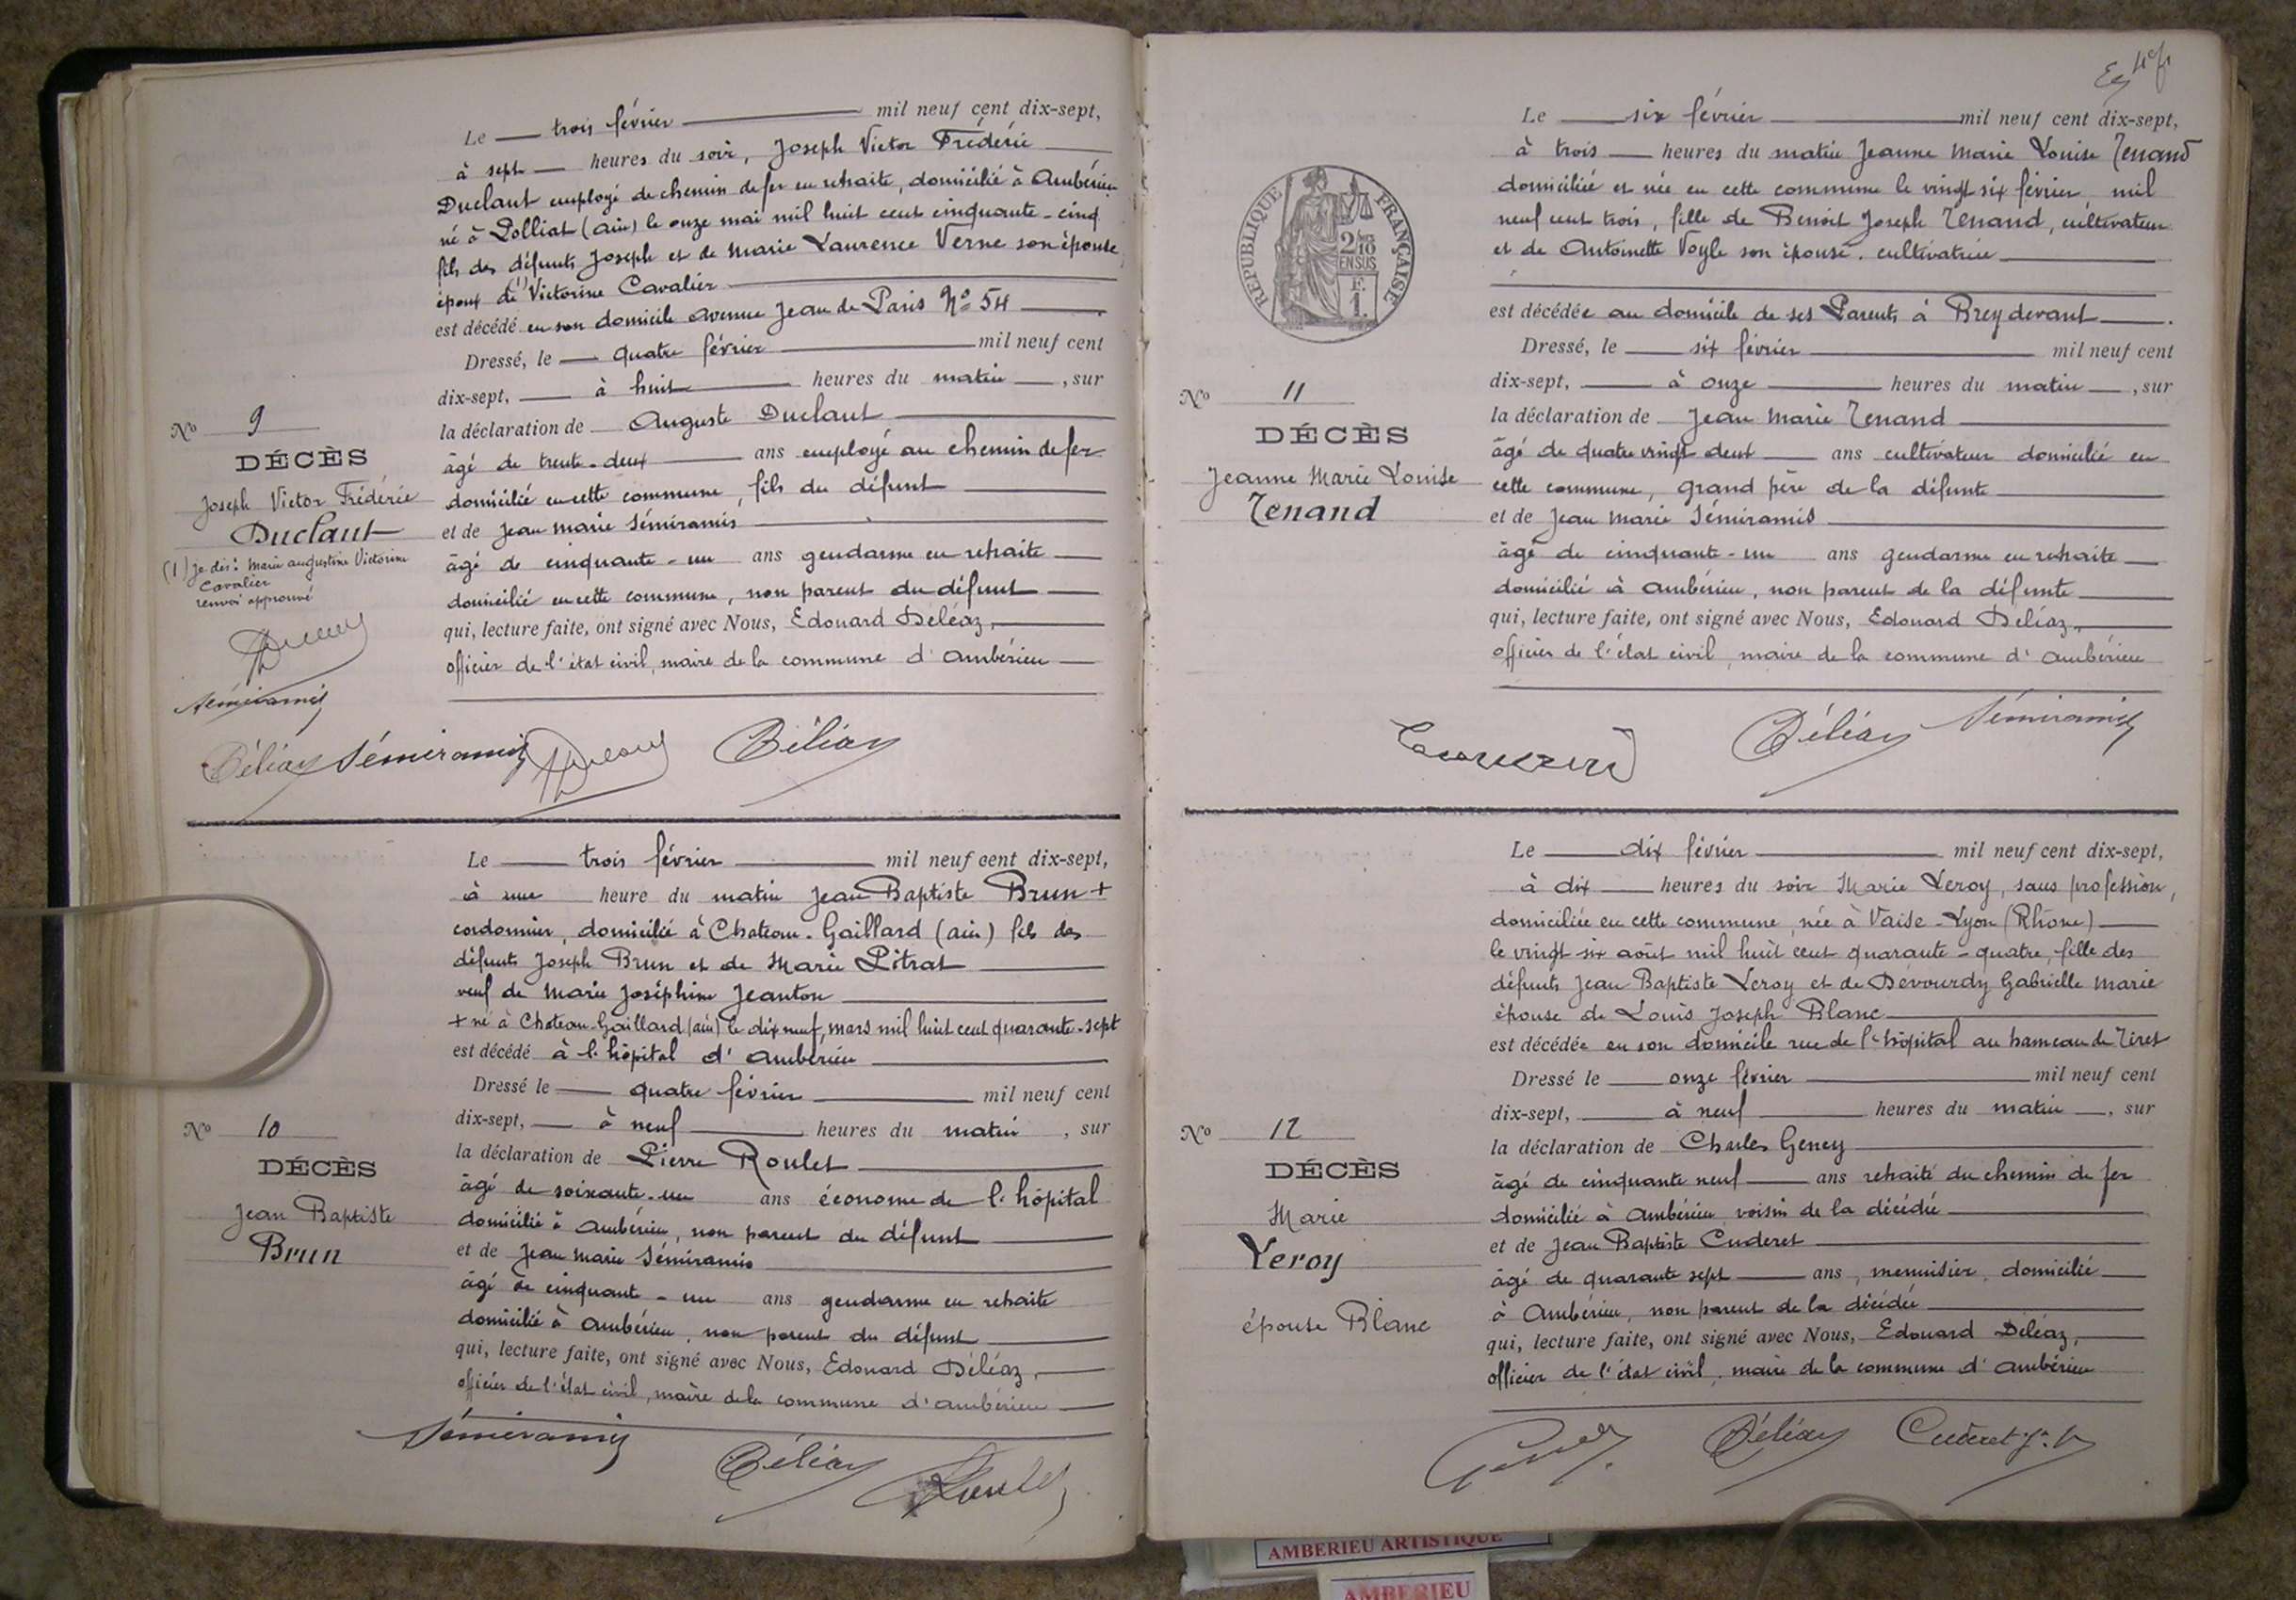 Le trois février mil neuf cent dix-sept,
à sept heures du soir, Joseph Victor Frédéric
Duclaut employé de chemin de fer en retraite, domicilié à Ambérieu
né à Polliat (ain) le onze mai mil huit cent cinquante-cinq
fils des défunts Joseph et de Marie Laurence Verne son épouse
époux de (1) Victorine Cavalier
est décédé en son domicile avenue Jean de Paris No 54
Dressé, le quatre février mil neuf cent
dix-sept, à huit heures du matin, sur
la déclaration de Auguste Duclaut
âgé de trente-deux ans employé au chemin de fer
domicilié en cette commune, fils du défunt
et de Jean Marie Séméramis
âgé de cinquante-un ans gendarme en retraite
domicilié en cette commune, non parent du défunt
qui, lecture faite, ont signé avec Nous, Edouard Déléaz,
officier de l'état civil, maire de la commune d'ambérieu
No 9
DÉCÈS
Joseph Victor Frédéric
Duclaut
(1) Je dis: Marie augustine Victorine
Cavalier
renvoi approuvé
Séméramis
Déléaz Séméramis Déléaz
Le trois février mil neuf cent dix-sept,
à une heure du matin Jean Baptiste Brun +
cordonnier, domicilié à Chateau-Gaillard (ain) fils des
défunts Joseph Brun et de Marie Pitrat
veuf de Marie Joséphine Jeanton
+ né à Chateau-Gaillard (ain) le dix neuf mars mil huit cent quarante-sept
est décédé à l'hôpital d'ambérieu
Dressé le quatre février mil neuf cent
dix-sept, à neuf heures du matin, sur
la déclaration de Pierre Roulet
âgé de soixante-un ans économe de l'hôpital
domicilié à ambérieu, non parent du défunt
et de Jean Marie Séméramis
âgé de cinquante-un ans gendarme en retraite
domicilié à ambérieu, non parent du défunt
qui, lecture faite, ont signé avec Nous, Edouard Déléaz,
officier de l'état civil, maire de la commune d'ambérieu
No 10
DÉCÈS
Jean Baptiste
Brun
Séméramis Déléaz Roulet
Le six février mil neuf cent dix-sept,
à trois heures du matin Jeanne Marie Louise Tenand
domiciliée et née en cette commune le vingt six février mil
neuf cent trois, fille de Benoit Joseph Tenand, cultivateur
et de Antoinette Voyle son épouse, cultivatrice
est décédée au domicile de ses Parents à Breydevant
Dressé, le six février mil neuf cent
dix-sept, à onze heures du matin, sur
la déclaration de Jean Marie Tenand
âgé de quatre vingt deux ans cultivateur domicilié en
cette commune, grand père de la défunte
et de Jean Marie Séméramis
âgé de cinquante-un ans gendarme en retraite
domicilié à ambérieu, non parent de la défunte
qui, lecture faite, ont signé avec Nous, Edouard Déléaz,
officier de l'état civil, maire de la commune d'ambérieu
RÉPUBLIQUE FRANÇAISE
2/10
EN SUS
F.
1.
No 11
DÉCÈS
Jeanne Marie Louise
Tenand
Déléaz Séméramis
Le dix février mil neuf cent dix-sept,
à dix heures du soir Marie Leroy, sans profession,
domiciliée en cette commune, née à Vaise-Lyon (Rhône)
le vingt six août mil huit cent quarante-quatre, fille des
défunts Jean Baptiste Leroy et de Dévourdy Gabrielle Marie
épouse de Louis Joseph Blanc
est décédée en son domicile rue de l'hôpital au hameau de Tiret
Dressé le onze février mil neuf cent
dix-sept, à neuf heures du matin, sur
la déclaration de Charles Geney
âgé de cinquante neuf ans retraité du chemin de fer
domicilié à Ambérieu voisin de la décédée
et de Jean Baptiste Cuderet
âgé de quarante sept ans, menuisier, domicilié
à Ambérieu, non parent de la décédée
qui, lecture faite, ont signé avec Nous, Edouard Déléaz,
officier de l'état civil, maire de la commune d'ambérieu
No 12
DÉCÈS
Marie
Leroy
épouse Blanc
Déléaz Cuderet
AMBERIEU ARTISTIQUE
AMBERIEU